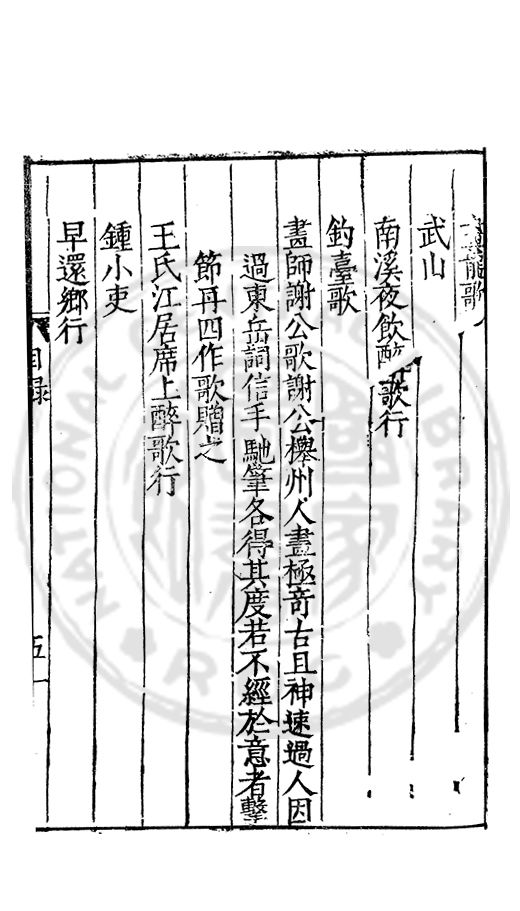 龍歌
武山
南溪夜飲醉歌行
釣臺歌
畫師謝公歌謝公櫸州人畫極奇古且神速過人因
過東岳詞信手馳筆各得其度若不經於意者擊
節再四作歌贈之
王氏江居席上醉歌行
鍾小吏
早還鄉行
目錄
五
NATIONAL LIBRARY